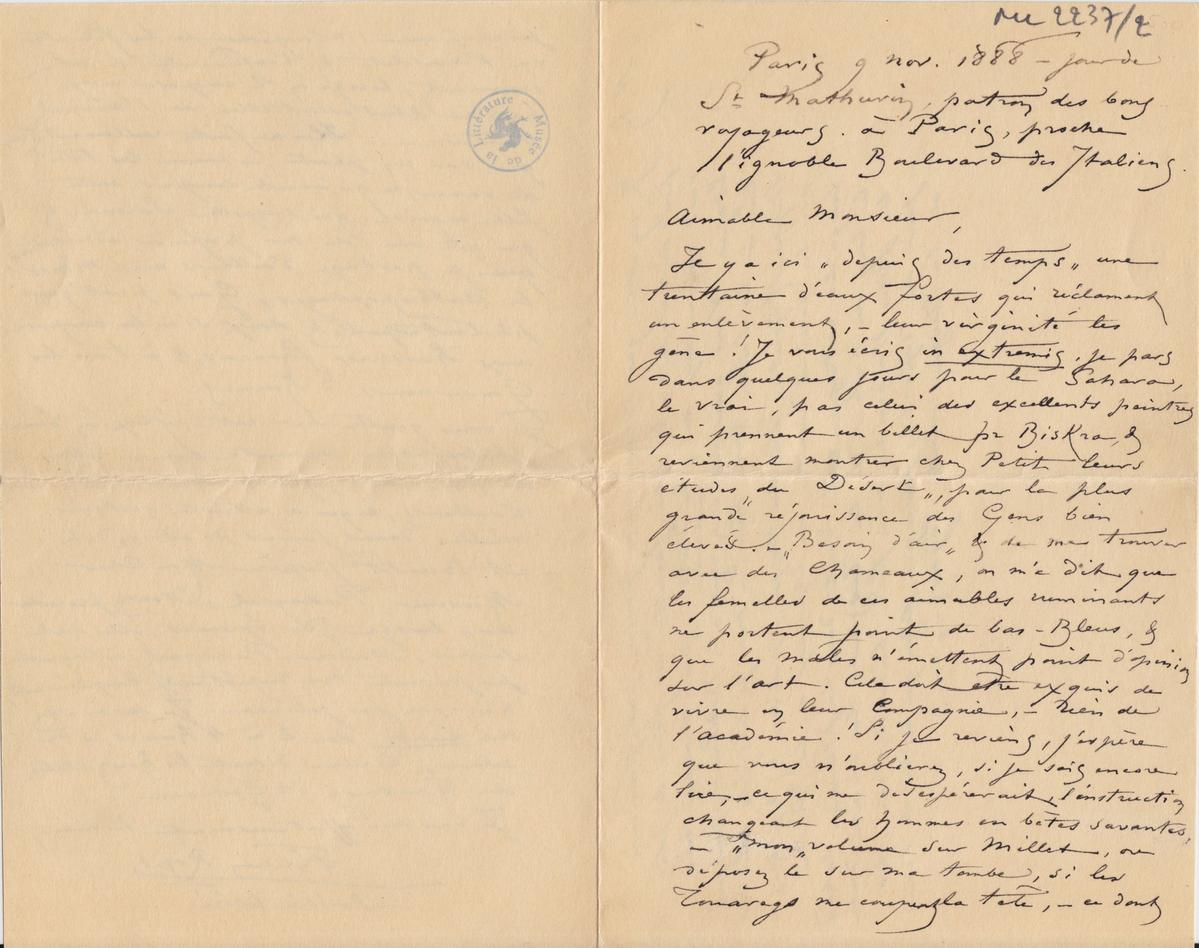 ML 2237/2
Musée de la Littérature
Paris 9 nov. 1888 – jour de
St Mathurin, patron des bons
voyageurs. à Paris, proche
l'ignoble Boulevard des Italiens.
Aimable Monsieur,
Il y a ici „depuis des temps„ une
trentaine d'eaux fortes qui réclament
un enlèvement, – leur virginité les
gène ! Je vous écris in extremis. je pars
dans quelques jours pour le Sahara,
le vrai, pas celui des excellents peintres
qui prennent un billet pr Biskra, &
reviennent montrer chez Petit leurs
études „du Désert„, pour la plus
grande réjouissance des Gens bien
élevés. – „Besoin d'air„ & de me trouver
avec des Chameaux, on m'a dit que
les femelles de ces aimables ruminants
ne portent point de bas-Bleus, &
que les mâles n'émettent point d'opinion
sur l'art. Cela doit etre exquis de
vivre en leur Compagnie, – rien de
l'académie ! Si je reviens, j'espère
que vous n'oublierez, si je sais encore
lire, – ce qui me désespérerait, l'instruction
changeant les hommes en bêtes savantes,
– „mon„ volume sur Millet, ou
déposez le sur ma tombe, si les
Touaregs me coupent la tête, – ce dont